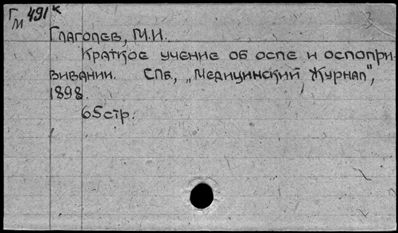 Г 491 к
М
Глаголев, М.И.
Краткое учение об оспе и оспопри-
вивании. Спб, „Медицинский Журнал",
1898.
65 стр.